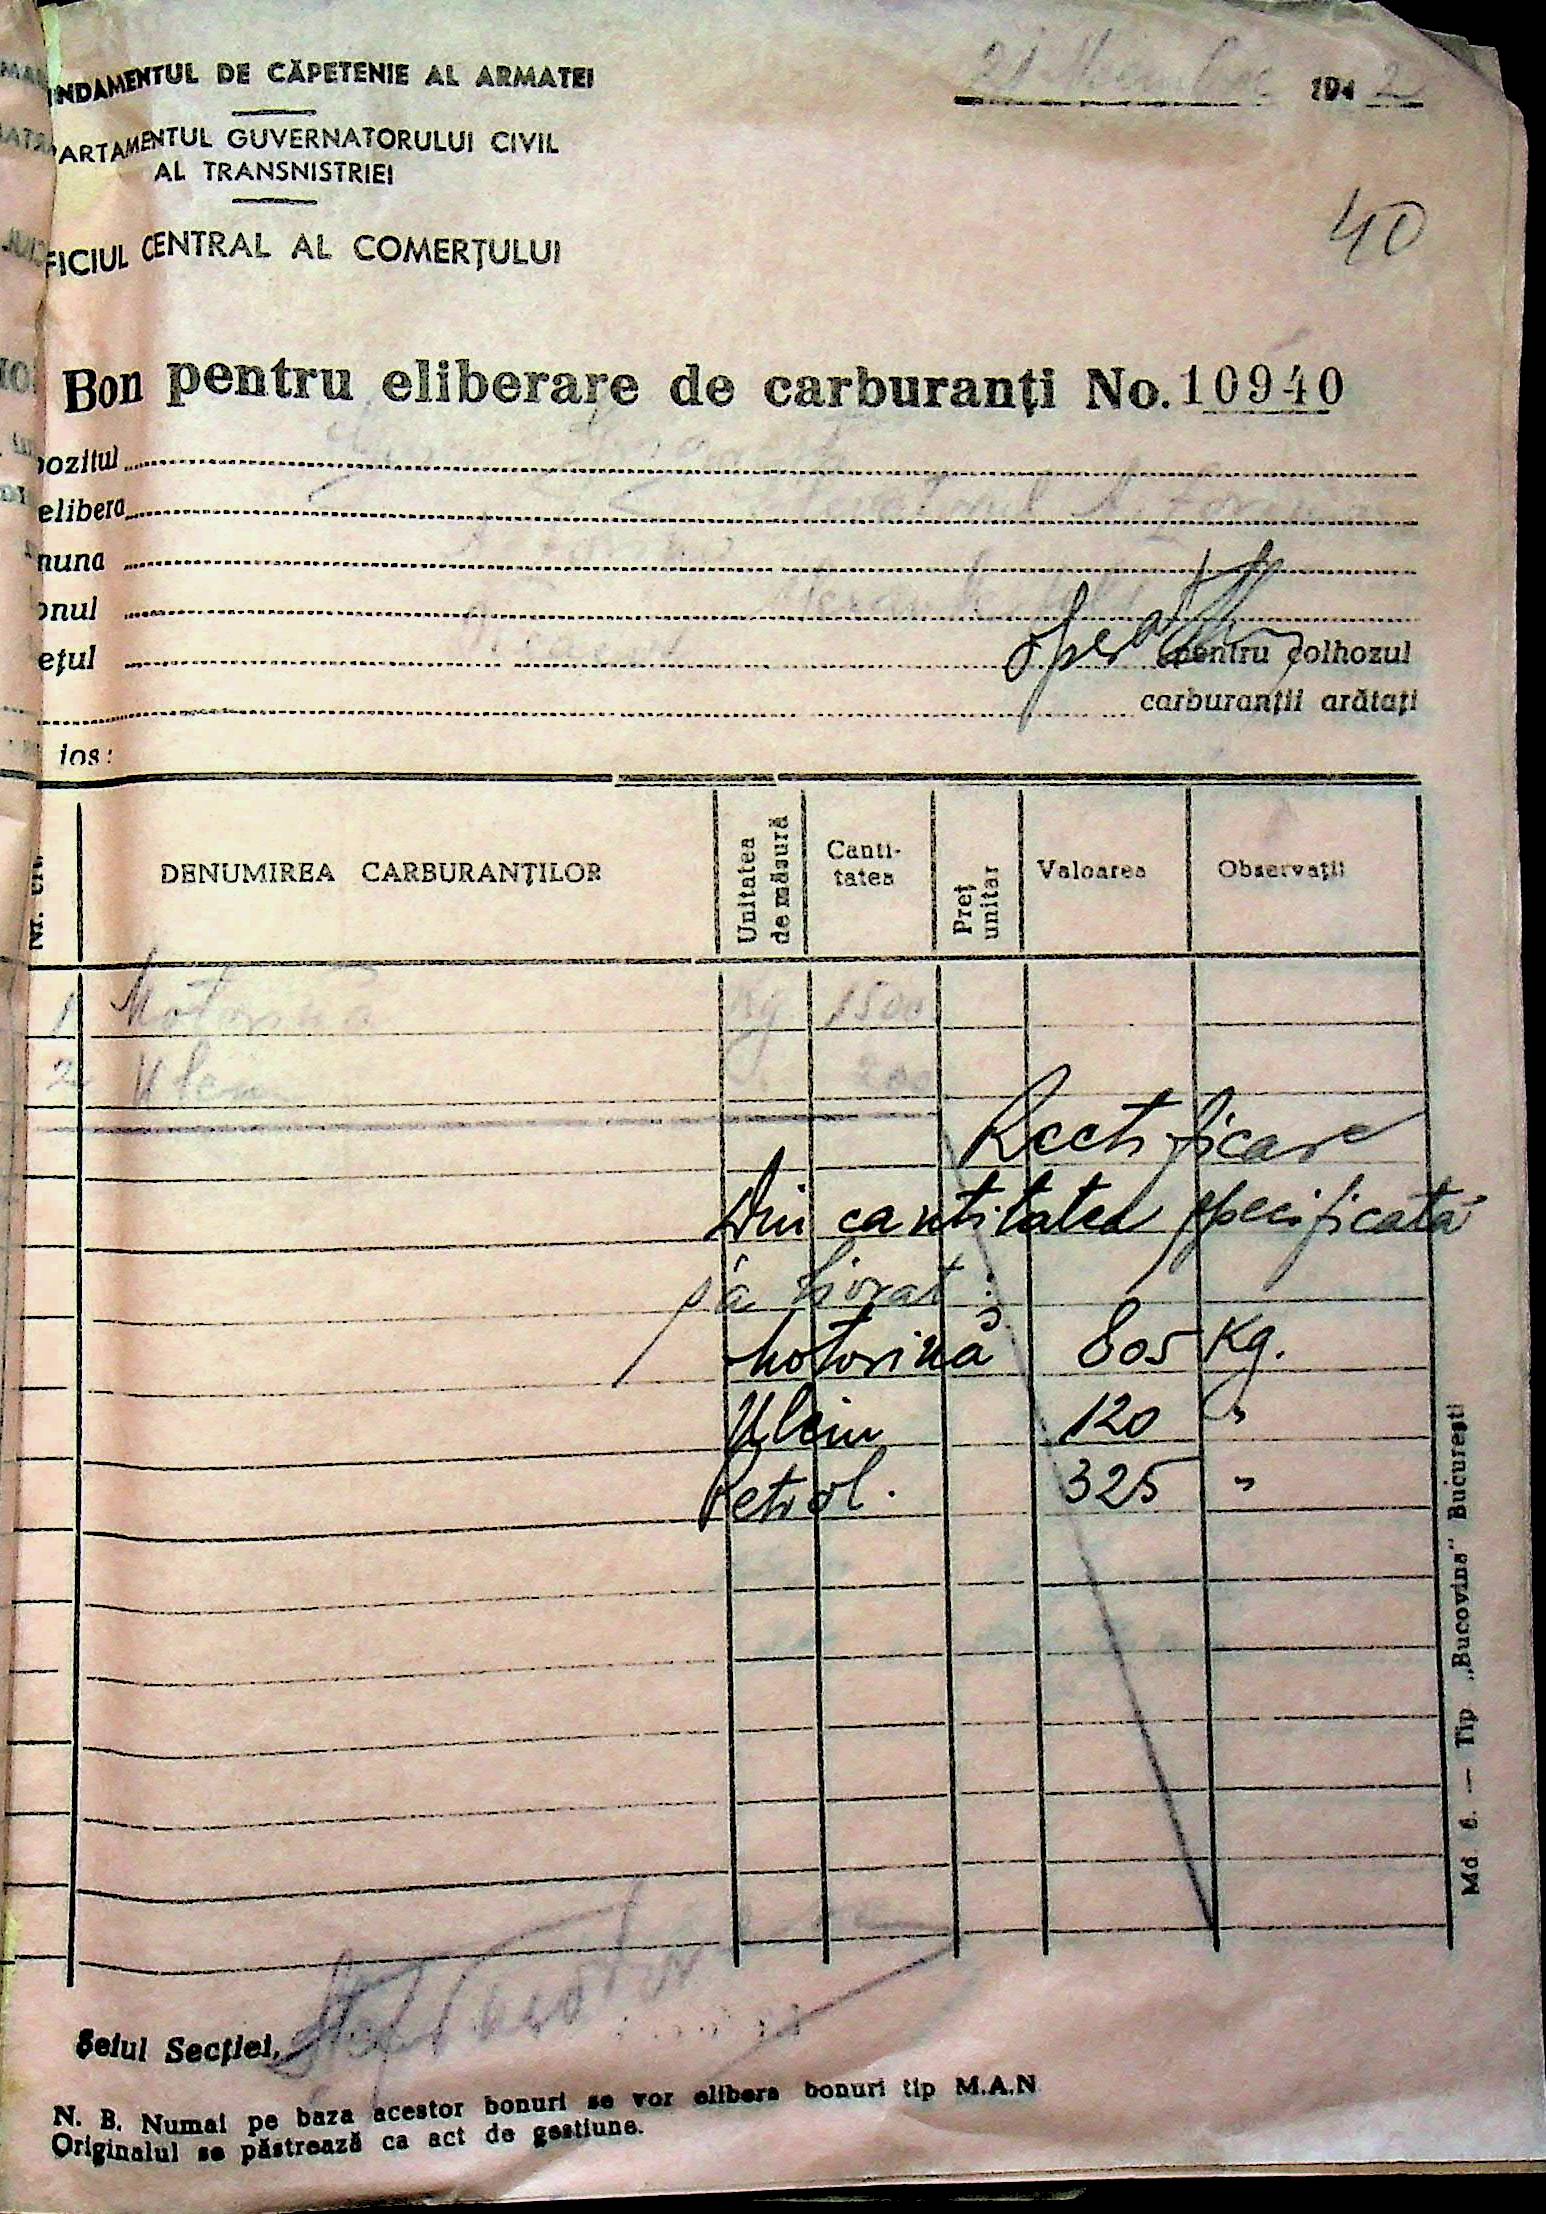 NDAMENTUL DE CĂPETENIE AL ARMATEI
21 194 2
PARTAMENTUL GUVERNATORULUI CIVIL
AL TRANSNISTRIEI
FICIUL CENTRAL AL COMERȚULUI
40
Bon pentru eliberare de carburanți No. 10940
pozitul
elibera
muna
onul
ețul pentru colhozul
carburanții arătați
jos:
Nr. crt. DENUMIREA CARBURANȚILOR Unitatea de măsură Canti-tatea Preț unitar Valoarea Observații
1 Motorină Kg 1500
2 Uleiu 200
Rectificare
Din cantitatea specificată
s'a livrat:
Motorină 805 Kg.
Uleiu 120 "
Petrol. 325 "
Șeful Secției,
N. B. Numai pe baza acestor bonuri se vor elibera bonuri tip M.A.N
Originalul se păstrează ca act de gestiune.
Md. 6. — Tip. „Bucovina" București